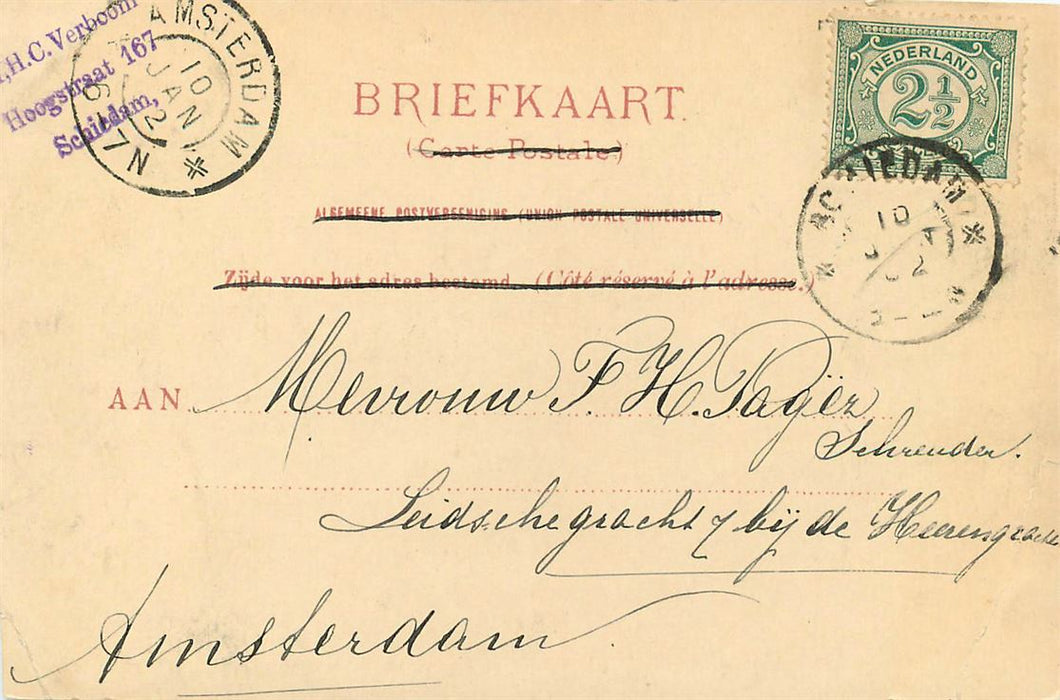 H.C. Verboom
Hoogstraat 167
Schiedam,
AMSTERDAM
10
JAN
2
6-7N
BRIEFKAART.
(Carte Postale.)
ALGEMEENE POSTVEREENIGING (UNION POSTALE UNIVERSELLE)
Zijde voor het adres bestemd. (Côté réservé à l'adresse.)
NEDERLAND
2½
SCHIEDAM
10
2
AAN
Mevrouw F. H. Pagëz
Schreuder.
Leidschegracht 7 bij de Heerengracht
Amsterdam